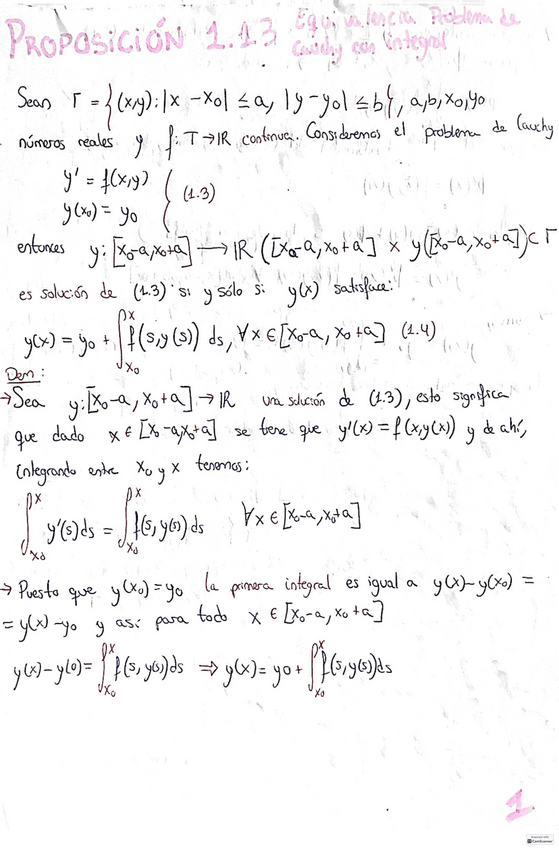 PROPOSICIÓN 1.13 Equivalencia Problema de
Cauchy con integral
Sean Γ = {(x,y): |x - x₀| ≤ a, |y - y₀| ≤ b}, a, b, x₀, y₀
números reales y f: T → IR continua. Consideremos el problema de Cauchy
y' = f(x,y)
y(x₀) = y₀ } (1.3)
entonces y: [x₀-a, x₀+a] → IR ([x₀-a, x₀+a] × y([x₀-a, x₀+a]) ⊂ Γ
es solución de (1.3) si y sólo si y(x) satisface:
y(x) = y₀ + ∫ₓ₀ˣ f(s, y(s)) ds, ∀x ∈ [x₀-a, x₀+a] (1.4)
Dem:
→ Sea y: [x₀-a, x₀+a] → IR una solución de (1.3), esto significa
que dado x ∈ [x₀-a, x₀+a] se tiene que y'(x) = f(x, y(x)) y de ahí,
integrando entre x₀ y x tenemos:
∫ₓ₀ˣ y'(s) ds = ∫ₓ₀ˣ f(s, y(s)) ds ∀x ∈ [x₀-a, x₀+a]
→ Puesto que y(x₀) = y₀ la primera integral es igual a y(x) - y(x₀) =
= y(x) - y₀ y así para todo x ∈ [x₀-a, x₀+a]
y(x) - y(0) = ∫ₓ₀ˣ f(s, y(s)) ds ⇒ y(x) = y0 + ∫ₓ₀ˣ f(s, y(s)) ds
1
CamScanner